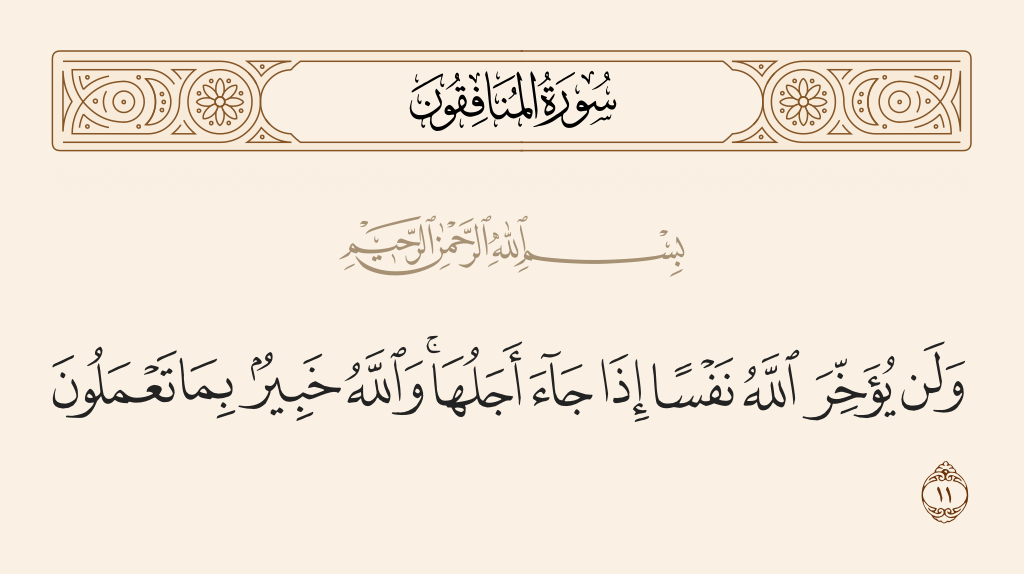 سُورَةُ المُنَافِقُونَ
بِسْمِ ٱللَّهِ ٱلرَّحْمَٰنِ ٱلرَّحِيمِ
وَلَن يُؤَخِّرَ ٱللَّهُ نَفْسًا إِذَا جَآءَ أَجَلُهَا ۚ وَٱللَّهُ خَبِيرٌۢ بِمَا تَعْمَلُونَ
١١